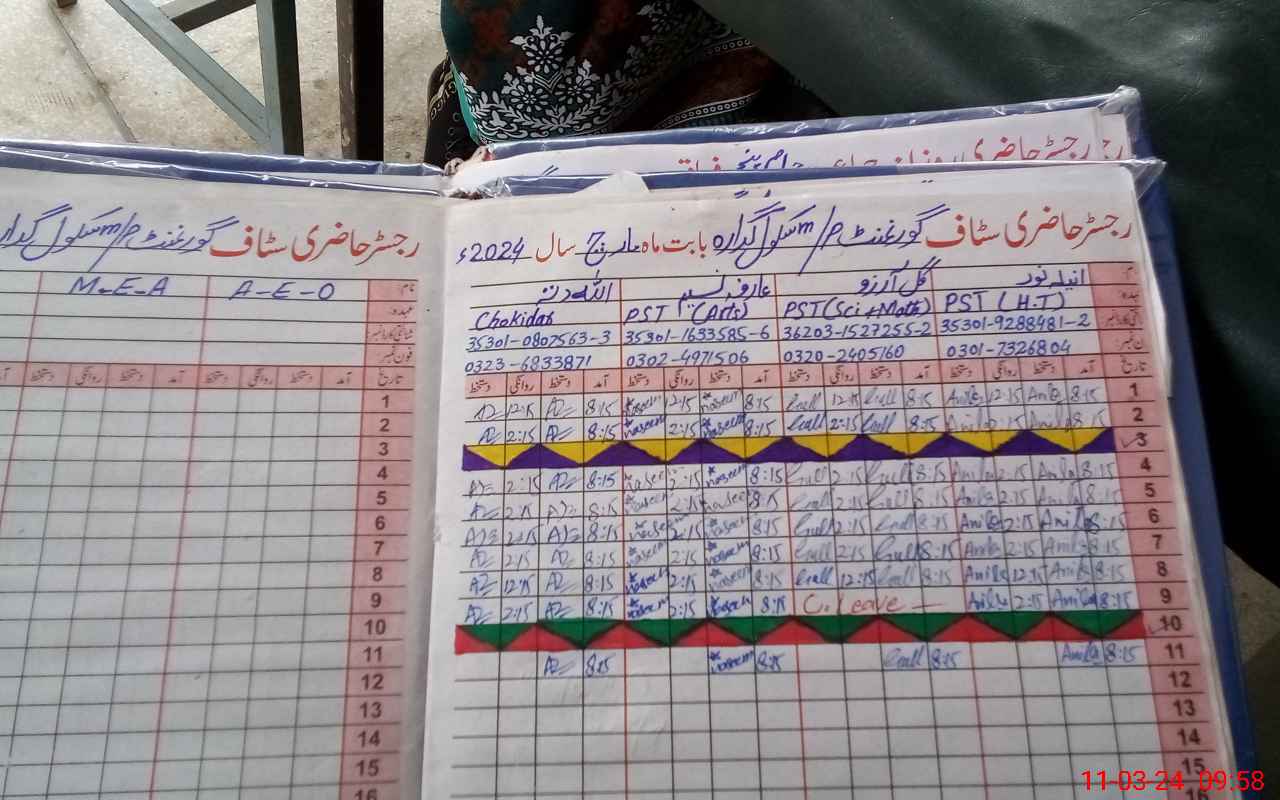 رجسٹر حاضری
رجسٹر حاضری سٹاف گورنمنٹ m/p سکول گدارہ بابت ماہ مارچ سال 2024ء
انیلہ نور گل آرزو عارفہ نسیم اللہ دتہ
PST (H.T) PST (Sci+Math) PST (Arts) Chokidar
35301-9288481-2 36203-1527255-2 35301-1633585-6 35301-0807563-3
0301-7326804 0320-2405160 0302-4971506 0323-6833871
آمد دستخط روانگی دستخط آمد دستخط روانگی دستخط آمد دستخط روانگی دستخط آمد دستخط روانگی دستخط
1 8:15 Anila 12:15 Anila 8:15 Gull 12:15 Gull 8:15 naseem 12:15 naseem 8:15 AD 12:15 AD
2 8:15 Anila 2:15 Anila 8:15 Gull 2:15 Gull 8:15 naseem 2:15 naseem 8:15 AD 2:15 AD
3
4 8:15 Anila 2:15 Anila 8:15 Gull 2:15 Gull 8:15 naseem 2:15 naseem 8:15 AD 2:15 AD
5 8:15 Anila 2:15 Anila 8:15 Gull 2:15 Gull 8:15 naseem 2:15 naseem 8:15 AD 2:15 AD
6 8:15 Anila 2:15 Anila 8:15 Gull 2:15 Gull 8:15 naseem 2:15 naseem 8:15 AD 2:15 AD
7 8:15 Anila 2:15 Anila 8:15 Gull 2:15 Gull 8:15 naseem 2:15 naseem 8:15 AD 2:15 AD
8 8:15 Anila 12:15 Anila 8:15 Gull 12:15 Gull 8:15 naseem 2:15 naseem 8:15 AD 12:15 AD
9 8:15 Anila 2:15 Anila C. Leave 8:15 naseem 2:15 naseem 8:15 AD 2:15 AD
10
11 8:15 Anila 8:15 Gull 8:15 naseem 8:15 AD
12
13
14
15
16
رجسٹر حاضری سٹاف گورنمنٹ m/p سکول گدارہ
نام A-E-O M-E-A
عہدہ
شناختی کارڈ نمبر
فون نمبر
تاریخ آمد دستخط روانگی دستخط آمد دستخط روانگی دستخط
1
2
3
4
5
6
7
8
9
10
11
12
13
14
15
16
11-03-24 09:58